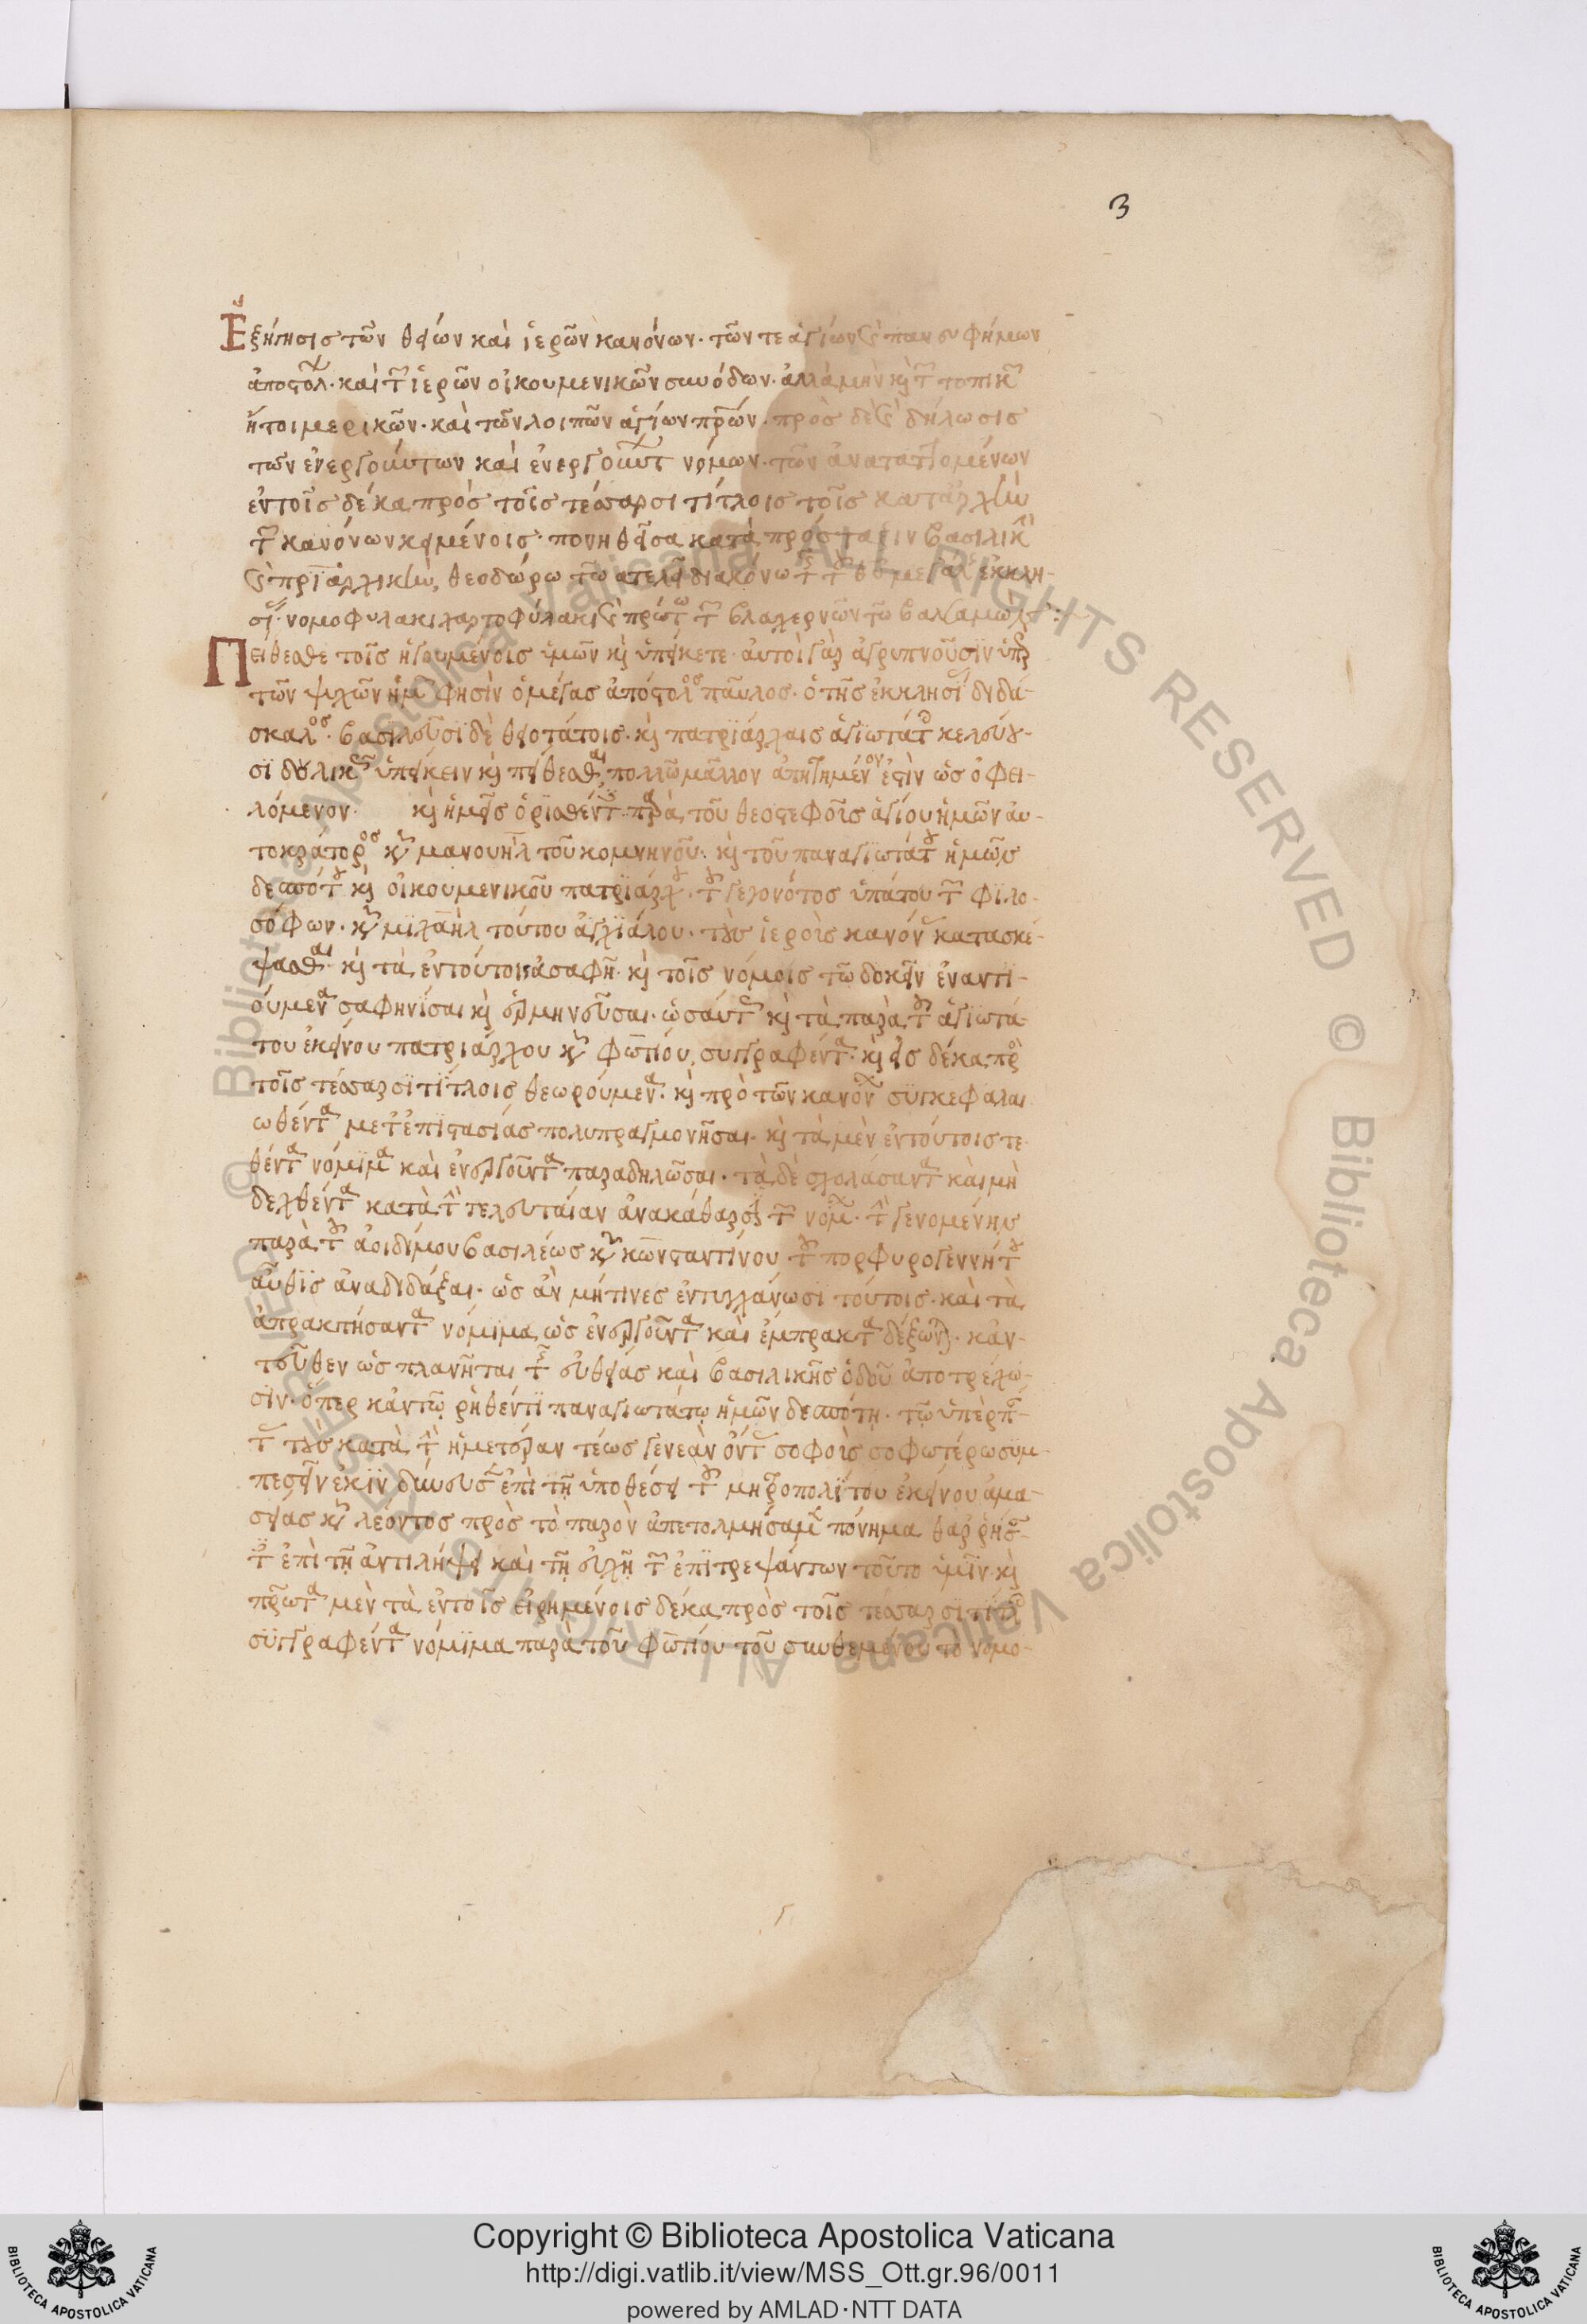 3
Ἐξήγησις τῶν θείων καὶ ἱερῶν κανόνων· τῶν τε ἁγίων καὶ πανευφήμων
ἀποστόλ· καὶ τῶν ἱερῶν οἰκουμενικῶν συνόδων· ἀλλὰ μὴν καὶ τῶν τοπικῶν
ἤτοι μερικῶν· καὶ τῶν λοιπῶν ἁγίων πρῶν· πρὸς δὲ καὶ δήλωσις
τῶν ἐνεργούντων καὶ ἐνεργούντ νόμων· τῶν ἀναταττομένων
ἐν τοῖς δέκα πρὸς τοῖς τέσσαρσι τίτλοις τοῖς κατ' ἀρχὴν
τῶν κανόνων κειμένοις· πονηθεῖσα κατὰ πρόσταξιν βασιλικὴν
καὶ πριαρχικὴν, θεοδώρω τῶ εὐτελεῖ διακόνω τῆς τοῦ θυ μεγάλης ἐκκλη-
σί· νομοφύλακι χαρτοφύλακι καὶ πρώτω τῶν βλαχερνῶν τῶ βαλσαμὼν:
Πείθεσθε τοῖς ἡγουμένοις ὑμῶν καὶ ὑπείκετε· αὐτοὶ γὰρ ἀγρυπνοῦσϊν ὑπὲρ
τῶν ψυχῶν ἡμῶν φησὶν ὁ μέγας ἀπόστολος παῦλος· ὁ τῆς ἐκκλησίας διδά-
σκαλος· βασιλεῦσϊ δὲ θειοτάτοις· καὶ πατρϊάρχαις ἁγϊωτάτοις κελεύου-
σϊ δουλικῶς ὑπείκειν καὶ πείθεσθαι, πολλῶ μᾶλλον ἀπῃτημένον ἐστὶν ὡς ὀφει-
λόμενον· καὶ ἡμεῖς ὁρϊσθέντες παρὰ τοῦ θεοστεφοῦς ἁγίου ἡμῶν αὐ-
τοκράτορος κυροῦ μανουὴλ τοῦ κομνηνοῦ· καὶ τοῦ παναγϊωτάτου ἡμῶν
δεσπότου καὶ οἰκουμενικοῦ πατρϊάρχου· τοῦ γεγονότος ὑπάτου τῶν φϊλο-
σόφων· κυροῦ μϊχαὴλ τούτου ἀγχϊάλου· τοὺς ἱεροὺς κανόνας κατασκέ-
ψασθαι· καὶ τὰ ἐν τούτοις ἀσαφῆ· καὶ τοῖς νόμοις τῶ δοκεῖν ἐναντϊ-
ούμενα σαφηνίσαι καὶ ἑρμηνεῦσαι· ὡσαύτως καὶ τὰ παρὰ τοῦ ἁγϊωτά-
του ἐκείνου πατριάρχου κυροῦ φωτίου, συγγραφέντα· καὶ εἰς δέκα πρὸς
τοῖς τέσσαρσϊ τίτλοις θεωρούμενα· καὶ πρὸ τῶν κανόνων συγκεφαλαι
ωθέντα μετ' ἐπϊστασίας πολυπραγμονῆσαι· καὶ τὰ μὲν ἐν τούτοις τε
θέντα νόμϊμα καὶ ἐνεργοῦντα παραδηλῶσαι· τὰ δὲ σχολάσαντα καὶ μὴ
δεχθέντα κατὰ τὴν τελευταίαν ἀνακάθαρσιν τῶν νόμων· τὴν γενομένην
παρὰ τοῦ ἀοιδίμου βασιλέως κυροῦ κωνσταντίνου τοῦ πορφυρογεννήτου
αὖθϊς ἀναδιδάξαι· ὡς ἂν μή τινες ἐντυγχάνωσϊ τούτοις· καὶ τὰ
ἀπρακτήσαντα νόμϊμα ὡς ἐνεργοῦντα καὶ ἔμπρακτα δέξωνται· κἀν-
τεῦθεν ὡς πλανῆται τῆς εὐθείας καὶ βασιλικῆς ὁδοῦ ἀποτρέχω-
σϊν· ὅπερ κἀν τῷ ῥηθέντϊ παναγιωτάτῳ ἡμῶν δεσπότῃ· τῷ ὑπὲρ πάν-
τας τοὺς κατὰ τὴν ἡμετέραν τέως γενεὰν ὄντας σοφοὺς σοφωτέρω συμ-
πεσεῖν
σείας κυροῦ λέοντος πρὸς τὸ παρὸν ἀπετολμήσαμεν πόνημα θαρρήσαν-
τες ἐπὶ τῇ ἀντιλήψει καὶ τῇ εὐχῇ τῶν ἐπϊτρεψάντων τοῦτο ἡμῖν· καὶ
πρῶτα μὲν τὰ ἐν τοῖς εἰρημένοις δέκα πρὸς τοῖς τέσσαρσϊ τίτλοις
συγγραφέντα νόμϊμα παρὰ τοῦ φωτίου τοῦ συνθεμένου τὸ νομο-
© Biblioteca Apostolica Vaticana ALL RIGHTS RESERVED © Biblioteca Apostolica Vaticana ALL RIGHTS RESERVED
Copyright © Biblioteca Apostolica Vaticana
http://digi.vatlib.it/view/MSS_Ott.gr.96/0011
powered by AMLAD·NTT DATA
BIBLIOTECA APOSTOLICA VATICANA
BIBLIOTECA APOSTOLICA VATICANA